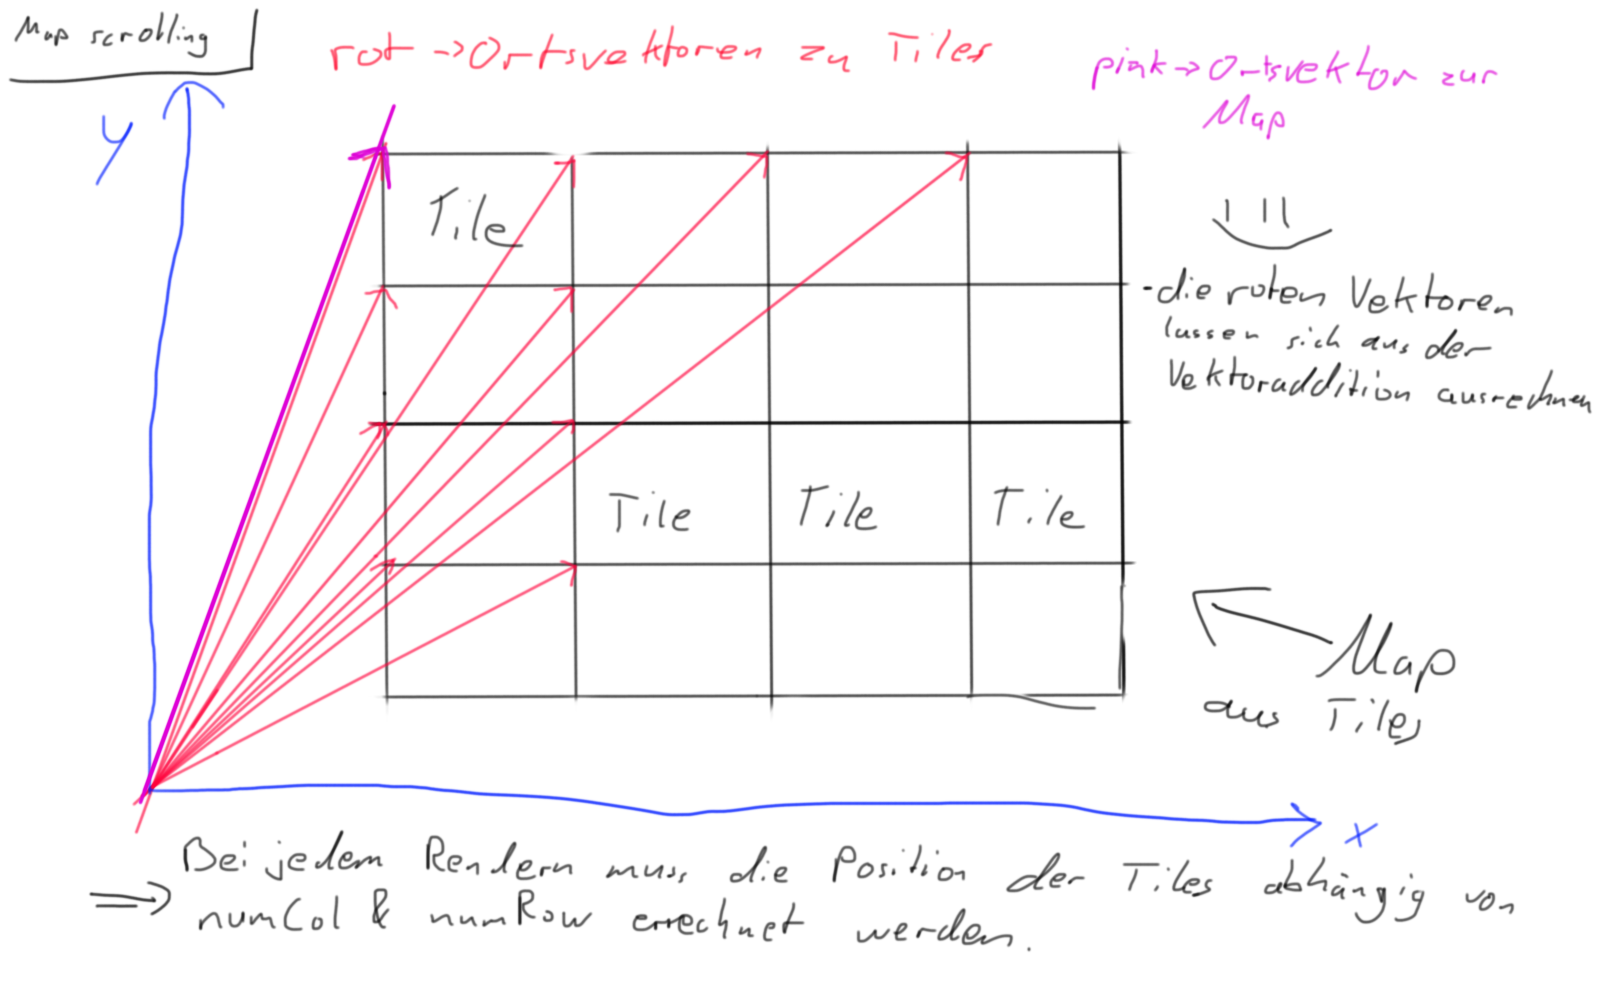 Map scrolling
rot -> Ortsvektoren zu Tiles
pink -> Ortsvektor zur
Map
y
Tile
- die roten Vektoren
lassen sich aus der
Vektoraddition ausrechnen
Tile Tile Tile
Map
aus Tiles
x
=> Bei jedem Rendern muss die Position der Tiles abhängig von
numCol & numRow errechnet werden.